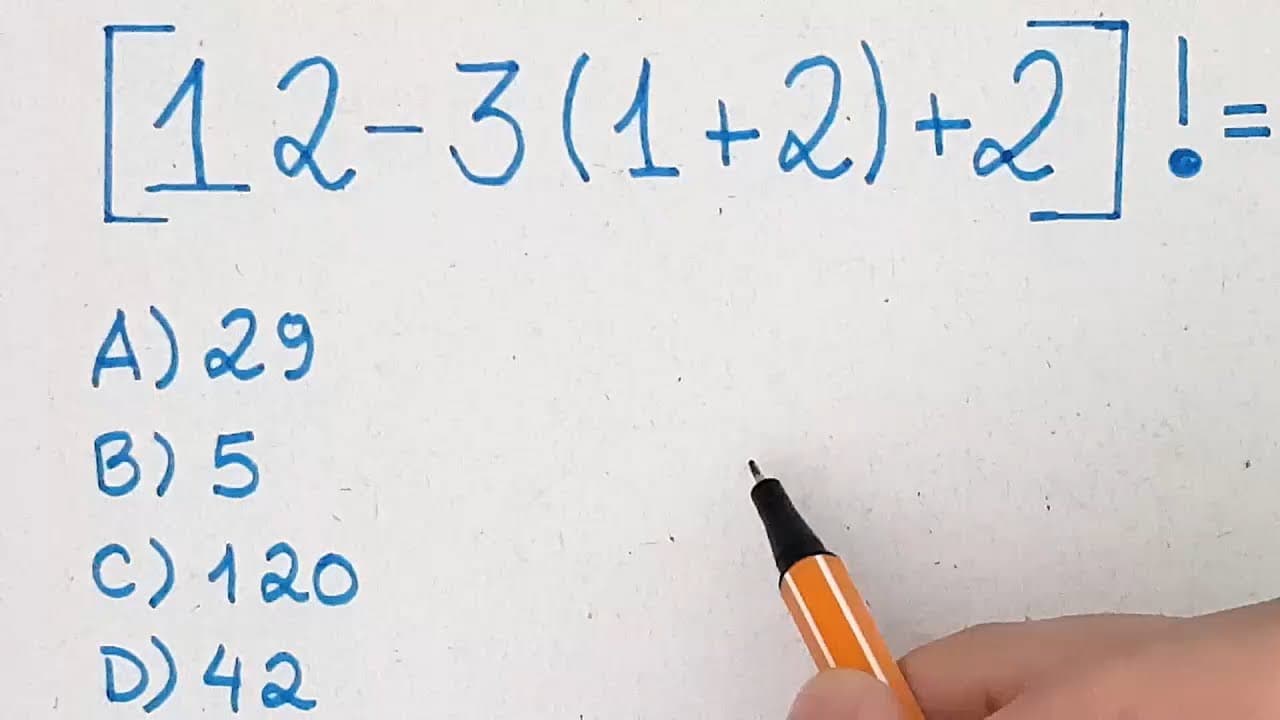 [12-3(1+2)+2]!=
A) 29
B) 5
C) 120
D) 42